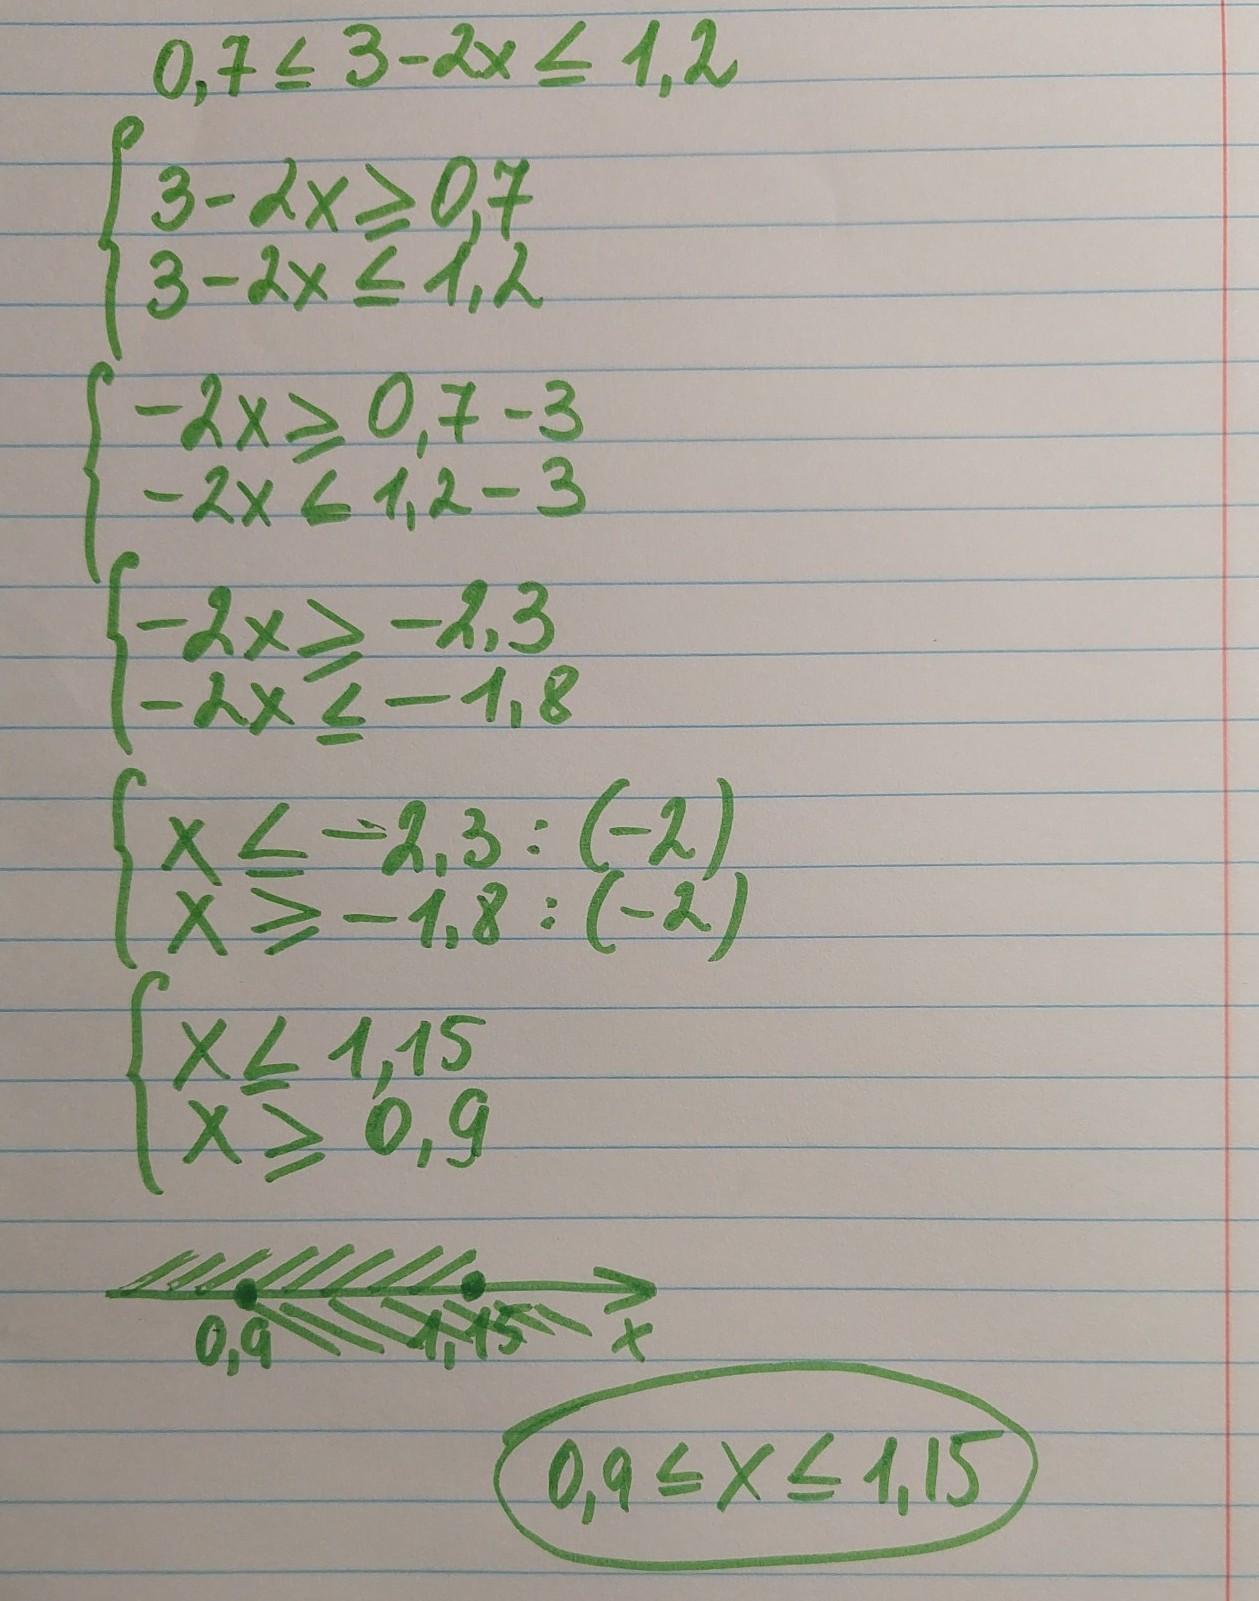 0,7 ≤ 3-2x ≤ 1,2
3-2x ≥ 0,7
3-2x ≤ 1,2
-2x ≥ 0,7-3
-2x ≤ 1,2-3
-2x ≥ -2,3
-2x ≤ -1,8
x ≤ -2,3 : (-2)
x ≥ -1,8 : (-2)
x ≤ 1,15
x ≥ 0,9
0,9 1,15 x
0,9 ≤ x ≤ 1,15